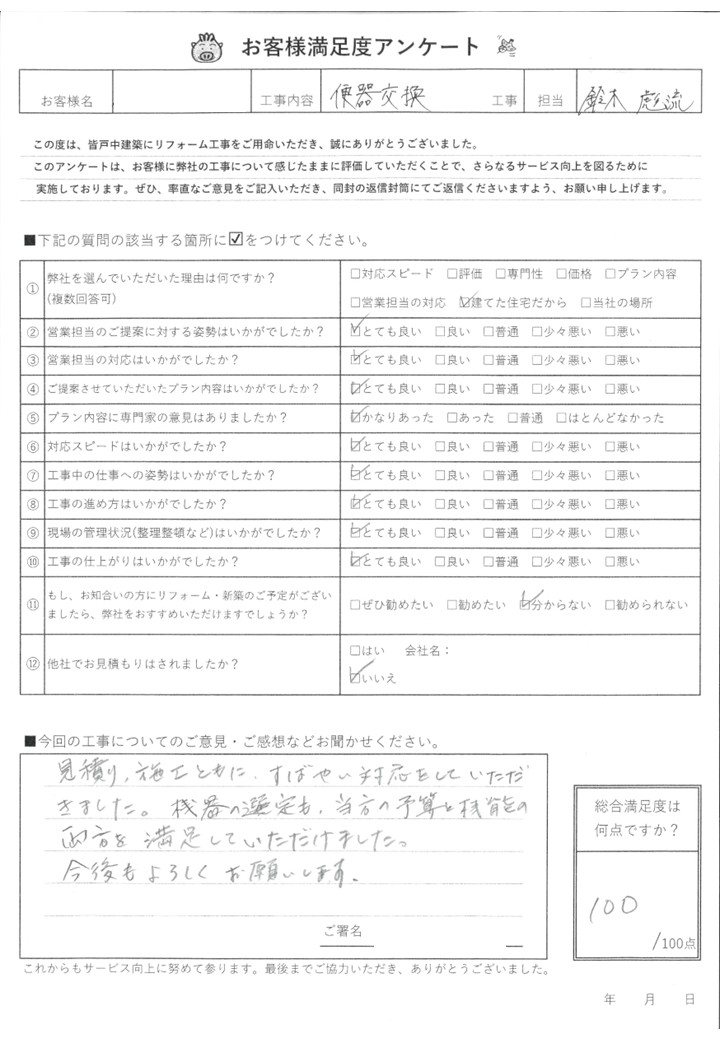 お客様満足度アンケート
お客様名 工事内容 便器交換 工事 担当 鈴木 彪流
この度は、皆戸中建築にリフォーム工事をご用命いただき、誠にありがとうございました。
このアンケートは、お客様に弊社の工事について感じたままに評価していただくことで、さらなるサービス向上を図るために
実施しております。ぜひ、率直なご意見をご記入いただき、同封の返信封筒にてご返信くださいますよう、お願い申し上げます。
■下記の質問の該当する箇所に☑をつけてください。
① 弊社を選んでいただいた理由は何ですか？ □対応スピード □評価 □専門性 □価格 □プラン内容
(複数回答可) □営業担当の対応 ☑建てた住宅だから □当社の場所
② 営業担当のご提案に対する姿勢はいかがでしたか？ ☑とても良い □良い □普通 □少々悪い □悪い
③ 営業担当の対応はいかがでしたか？ ☑とても良い □良い □普通 □少々悪い □悪い
④ ご提案させていただいたプラン内容はいかがでしたか？ ☑とても良い □良い □普通 □少々悪い □悪い
⑤ プラン内容に専門家の意見はありましたか？ ☑かなりあった □あった □普通 □ほとんどなかった
⑥ 対応スピードはいかがでしたか？ ☑とても良い □良い □普通 □少々悪い □悪い
⑦ 工事中の仕事への姿勢はいかがでしたか？ ☑とても良い □良い □普通 □少々悪い □悪い
⑧ 工事の進め方はいかがでしたか？ ☑とても良い □良い □普通 □少々悪い □悪い
⑨ 現場の管理状況(整理整頓など)はいかがでしたか？ ☑とても良い □良い □普通 □少々悪い □悪い
⑩ 工事の仕上がりはいかがでしたか？ ☑とても良い □良い □普通 □少々悪い □悪い
⑪ もし、お知合いの方にリフォーム・新築のご予定がござい
ましたら、弊社をおすすめいただけますでしょうか？ □ぜひ勧めたい □勧めたい ☑分からない □勧められない
⑫ 他社でお見積もりはされましたか？ □はい 会社名：
☑いいえ
■今回の工事についてのご意見・ご感想などお聞かせください。
見積り、施工ともに、すばやい対応をしていただ
きました。機器の選定も、当方の予算と機能の
両方を満足していただけました。
今後もよろしくお願いします。
ご署名
総合満足度は
何点ですか？
100
/100点
これからもサービス向上に努めて参ります。最後までご協力いただき、ありがとうございました。
年 月 日